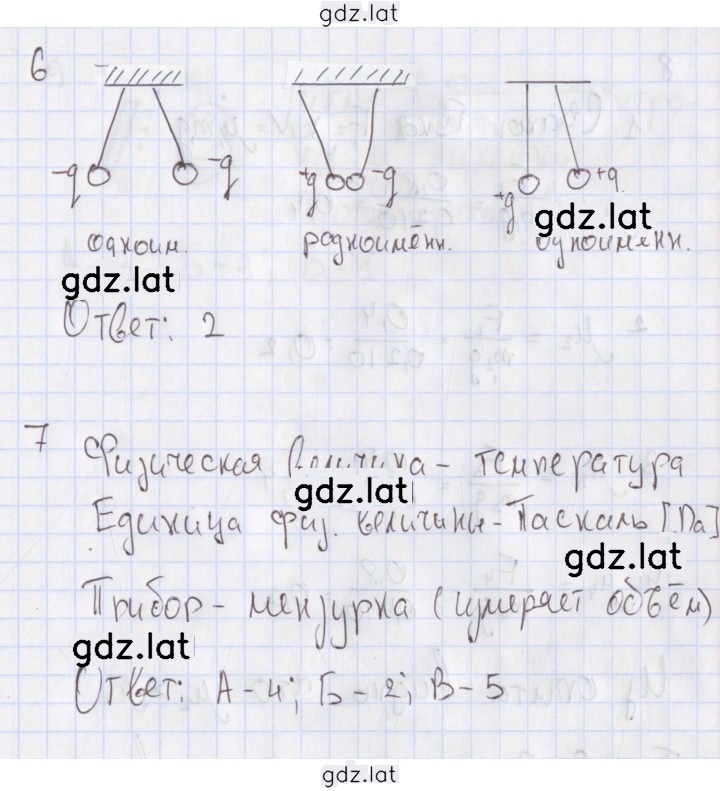 gdz.lat
6
-q -q +q -q +q +q
одноим. разноимённ. одноименн.
gdz.lat
gdz.lat
Ответ: 2
7 Физическая величина - температура
gdz.lat
Единица физ. величины - Паскаль [Па]
gdz.lat
Прибор - мензурка (измеряет объём)
gdz.lat
Ответ: А-4; Б-2; В-5
gdz.lat